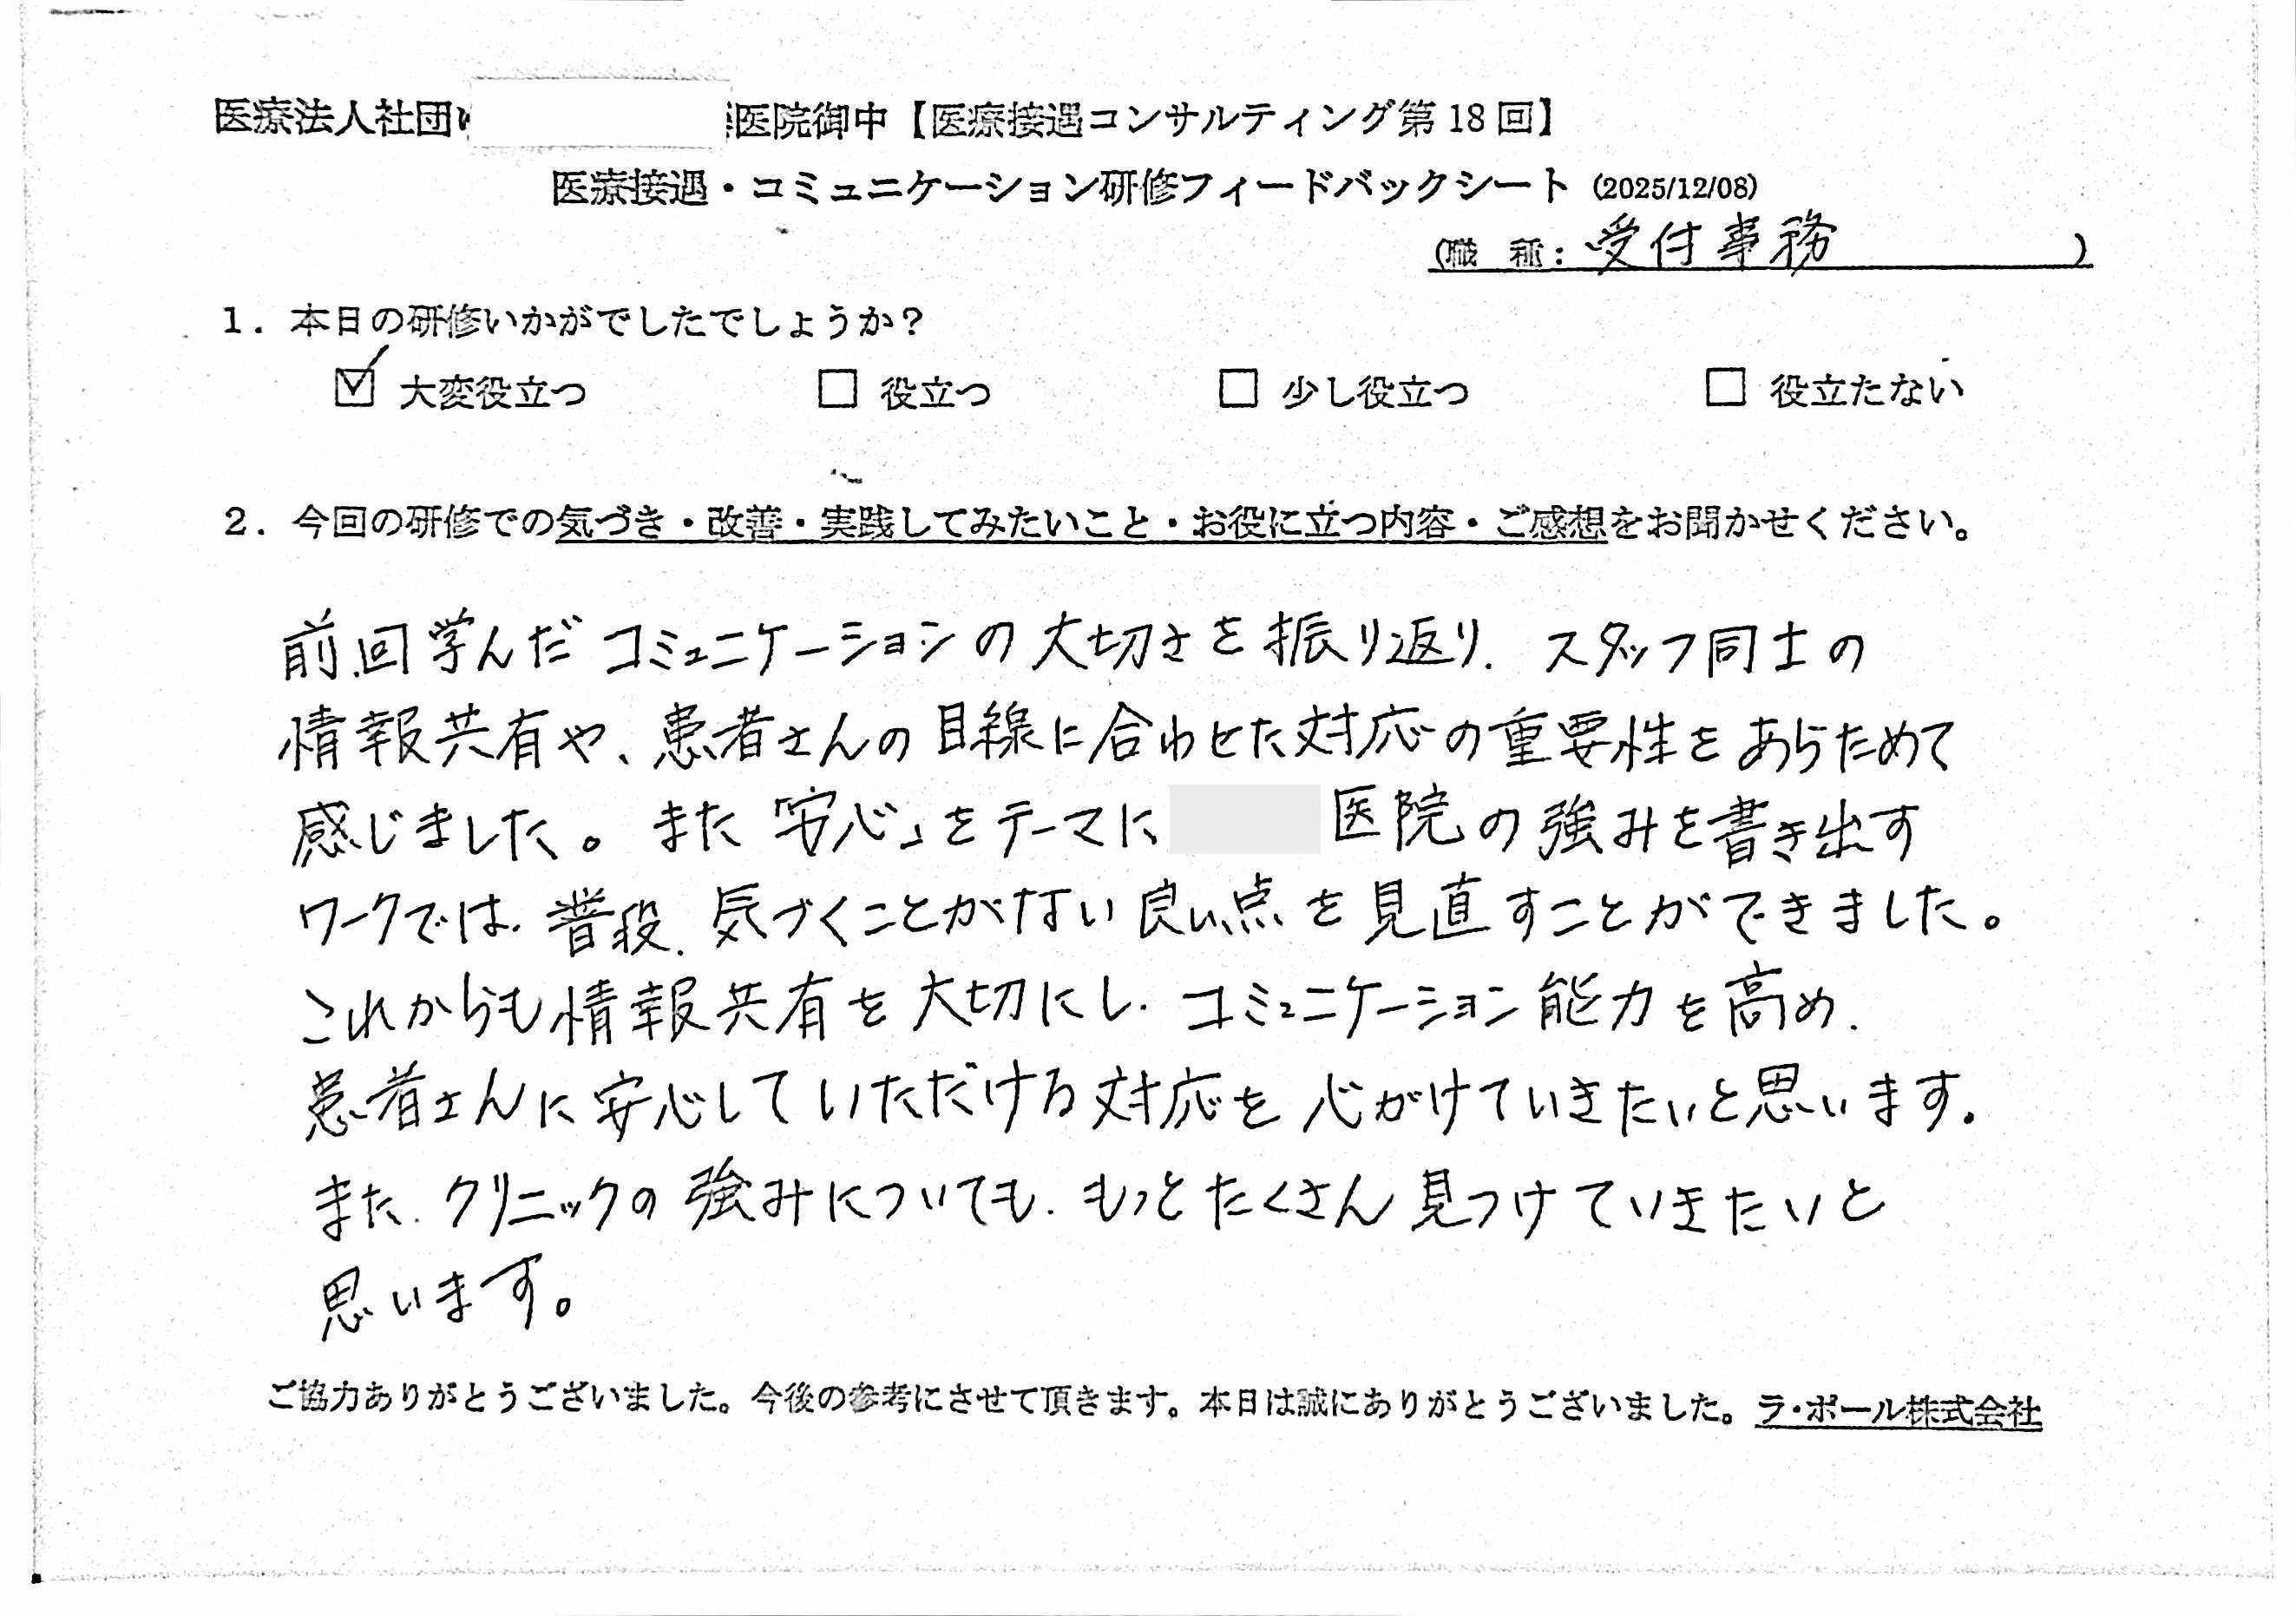 医療法人社団 医院御中【医療接遇コンサルティング第18回】
医療接遇・コミュニケーション研修フィードバックシート (2025/12/08)
(職 種: 受付事務 )
1. 本日の研修いかがでしたでしょうか?
☑ 大変役立つ □ 役立つ □ 少し役立つ □ 役立たない
2. 今回の研修での気づき・改善・実践してみたいこと・お役に立つ内容・ご感想をお聞かせください。
前回学んだコミュニケーションの大切さを振り返り、スタッフ同士の
情報共有や、患者さんの目線に合わせた対応の重要性をあらためて
感じました。また「安心」をテーマに 医院の強みを書き出す
ワークでは、普段、気づくことがない良い点を見直すことができました。
これからも情報共有を大切にし、コミュニケーション能力を高め、
患者さんに安心していただける対応を心がけていきたいと思います。
また、クリニックの強みについても、もっとたくさん見つけていきたいと
思います。
ご協力ありがとうございました。今後の参考にさせて頂きます。本日は誠にありがとうございました。ラ・ポール株式会社